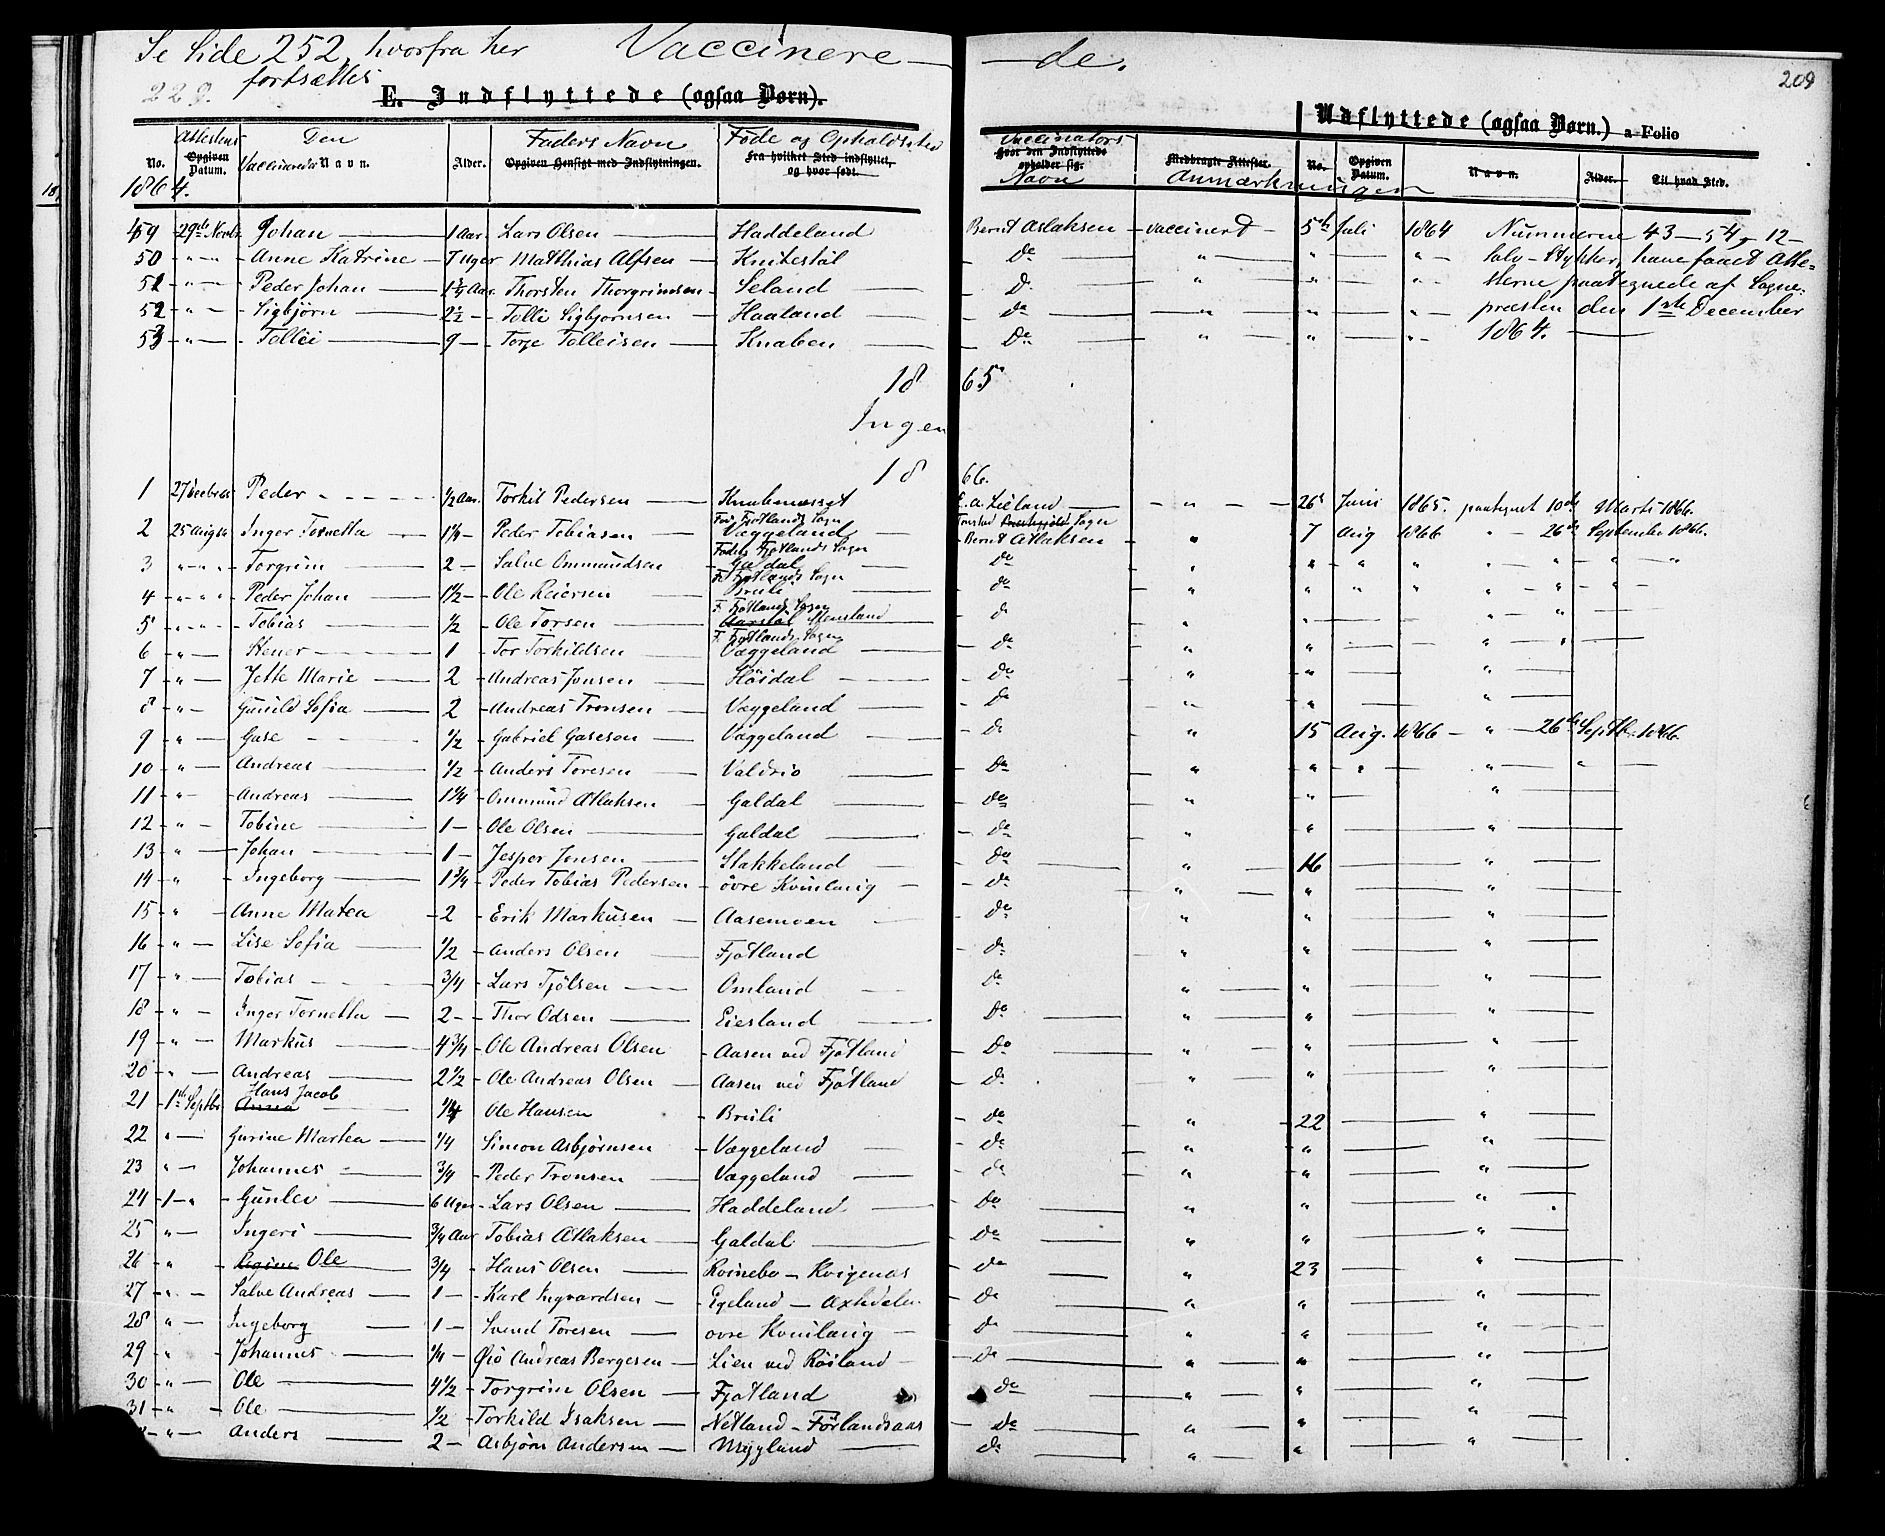 Se Side 252, hvorfra her Vaccinere — — de.
fortsættes
229. E. Indflyttede (ogsaa Børn). Udflyttede (ogsaa Børn.) a Folio 208
Attestens Den Faders Navn Føde og Opholdssted Vaccinators
No. Opgiven Datum. Vaccineredes Navn. Alder. Opgiven Hensigt med Indflytningen. Fra hvilket Sted indflyttet, og hvor født. Hvor den Indflyttede opholder sig. Navn Medbragte Attester. Anmærkninger No. Opgiven Datum. Navn. Alder. Til hvad Sted.
1864.
49 29de Novbr Johan — 1 Aar. Lars Olsen — Haddeland Bernt Aslaksen — vaccineret — 5te Juli 1864 Nummerne 43 — 54, 12 —
50 " " — Anne Katrine — 7 Uger Matthias Alfsen — Knibestøl — do " " " tolv — Stykker, have faaet Atte=
51 " " — Peder Johan — 1¼ Aar Thorsten Thorgrimsen — Seland — do " " " sterne paategnede af Sogne=
52 " — Sigbjørn — 2½ — Tolli Sigbjørnsen — Haaland — do " " " præsten den 1ste December
53 " — Tollei — 9 — Torje Tolleisen — Knaben — do " " " 1864.
18 65
Ingen
18 66.
1 27 Peder — ½ Aar. Torkil Pedersen — Knabenesset E. A. Lieland — " — 26de Juni 1865. paategnet 10de Marts 1866.
Fød. Fjotlands Sogn Tonstad Sogn
2 25 Augst Inger Tornetta 1½ — Peder Tobiasen — Væggeland — Bernt Atlaksen — " 7 Aug 1866 " — 26de September 1866.
Født Fjotlands Sogn
3 " " " — Torgrim — 2 — Salve Ommundsen — Galdal — do " " " " " " " "
F. Fjotlands Sogn
4 " " " — Peder Johan — 1½ — Ole Reiersen — Bruli — do " " " " " " "
F. Fjotlands Sogn
5 " " " — Tobias — ½ — Ole Torsen — Aarstøl Stensland — do " " — " —
F. Fjotlands Sogn
6 " — Stener — 1 — Tor Torkildsen — Væggeland — do " " — " "
7 " — Jette Marie — 2 — Andreas Jonsen — Høidal — do " " — "
8 " — Gunild Sofia — 2 — Andreas Tronsen — Væggeland — do " " — "
9 " — Gase — ½ — Gabriel Gasesen — Væggeland — do " 15 Aug. 1866 — " — 26de Septb. 1866.
10 " — Andreas — ½ — Anders Toresen — Valdrio — do " " " — " "
11 " — Andreas — 1¼ — Ommund Atlaksen — Galdal — do " " — "
12 " — Tobine — 1 — Ole Olsen — Galdal — do " " — "
13 " — Johan — 1 — Jesper Jensen — Stakkeland — do — " — 16 — "
14 " — Ingeborg — 1¾ — Peder Tobias Pedersen — øvre Kvinlaug — do — " — " — "
15 " — Anne Matea — 2 — Erik Markusen — Aasemoen — do " " — "
16 " — Lise Sofia — ½ — Anders Olsen — Fjotland — do " " — "
17 " — Tobias — ¾ — Lars Tjølsen — Omland — do " — " — "
18 " — Inger Tornetta — 2 — Thor Odsen — Eiesland — do " — " — "
19 " — Markus — 4¾ — Ole Andreas Olsen — Aasen ved Fjotland — do " — " — "
20 " — Andreas — 2½ — Ole Andreas Olsen — Aasen ved Fjotland — do " — " — "
21 1ste Septbr Anna Hans Jacob — ¼ Ole Hansen — Bruli — do " — 22 — "
22 " — Gurine Martea — ¼ Simon Asbjørnsen — Væggeland — do " — " — "
23 " — Johannes — ¾ — Peder Tronsen — Væggeland — do " — " — "
24 1 — " Gunlev — 6 Uger — Lars Olsen — Haddeland — do " " — "
25 " — Ingeri — ¾ Aar Tobias Atlaksen — Galdal — do " " — "
26 " — Ole — ¾ — Hans Olsen — Kvinebo — Kvigenas — do " 23 — "
27 " — Salve Andreas — 1 — Karl Ingvardsen — Egeland — — do " " — "
28 " — Ingeborg — 1 — Svend Toresen — øvre Kvinlaug — do " " — "
29 " — Johannes — ¼ — Andreas Bergesen — Lien ved Røiland — do " " — "
30 " — Ole — 4½ — Torgrim Olsen — Fjotland — do " " — "
31 " — Ole — ½ — Torkild Isaksen — Netland — Førlandsaas — do " " — "
" — Anders — 2 — Asbjørn Andersen — Mygland — do " " — "